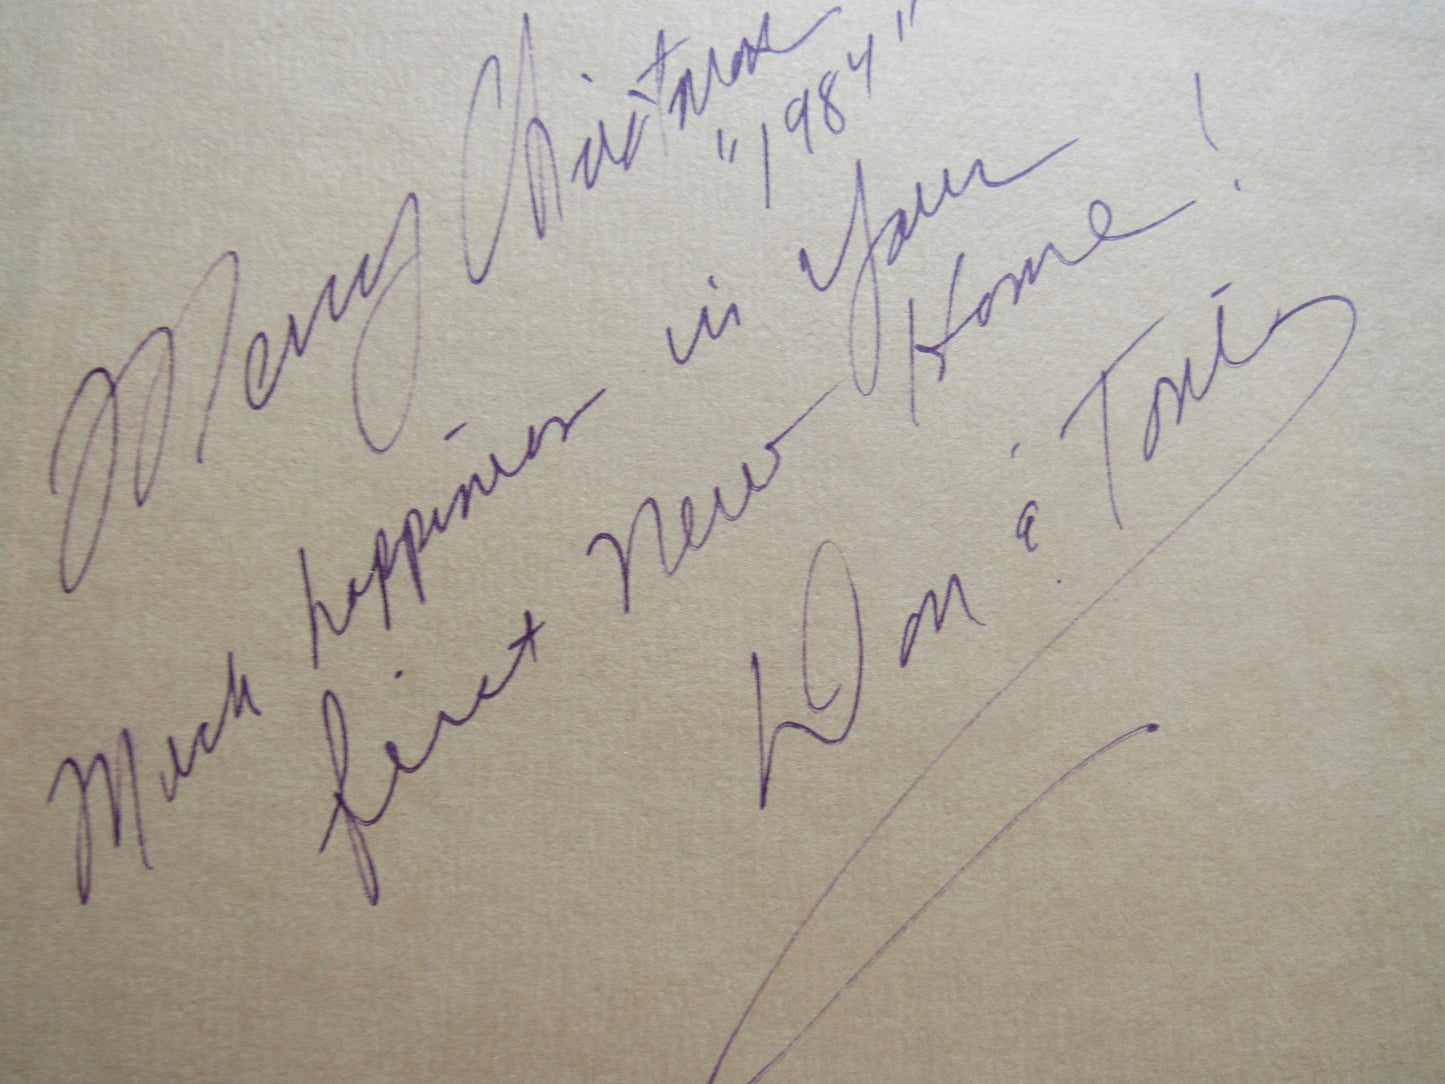 Merry Christmas
"1984"
Much happiness in your
first New Home!
Don & Toni